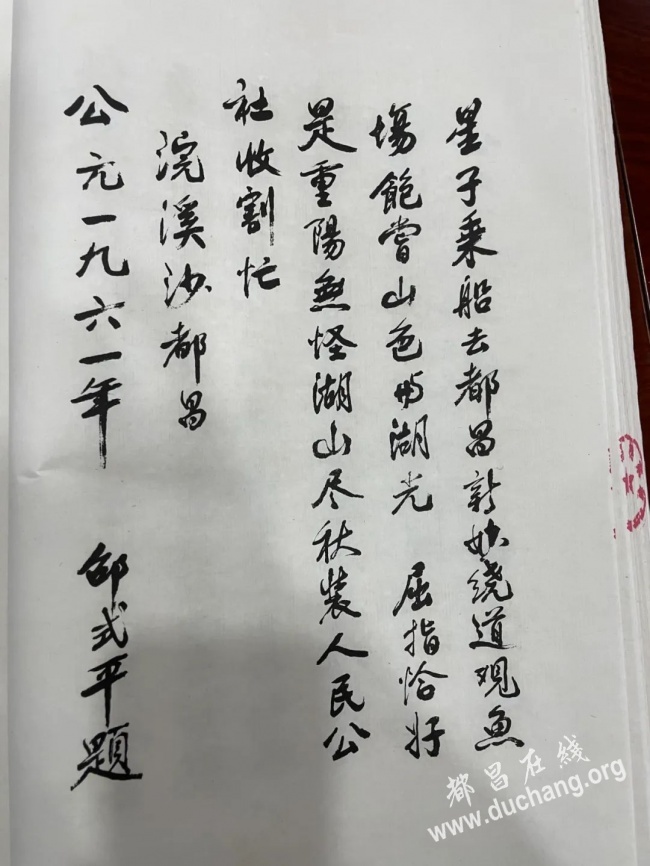 星子乘船去都昌新妙绕道观鱼
塲飽嘗山色与湖光 屈指恰好
是重陽無怪湖山尽秋装人民公
社收割忙
浣溪沙都昌
公元一九六一年 邵式平題
都昌在线
www.duchang.org